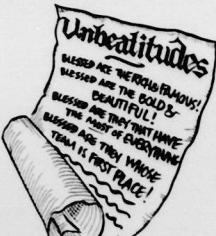 Unbeatitudes
BLESSED ARE THE RICH & FAMOUS!
BLESSED ARE THE BOLD &
BEAUTIFUL!
BLESSED ARE THEY THAT HAVE
THE MOST OF EVERYTHING
BLESSED ARE THEY WHOSE
TEAM IS FIRST PLACE!